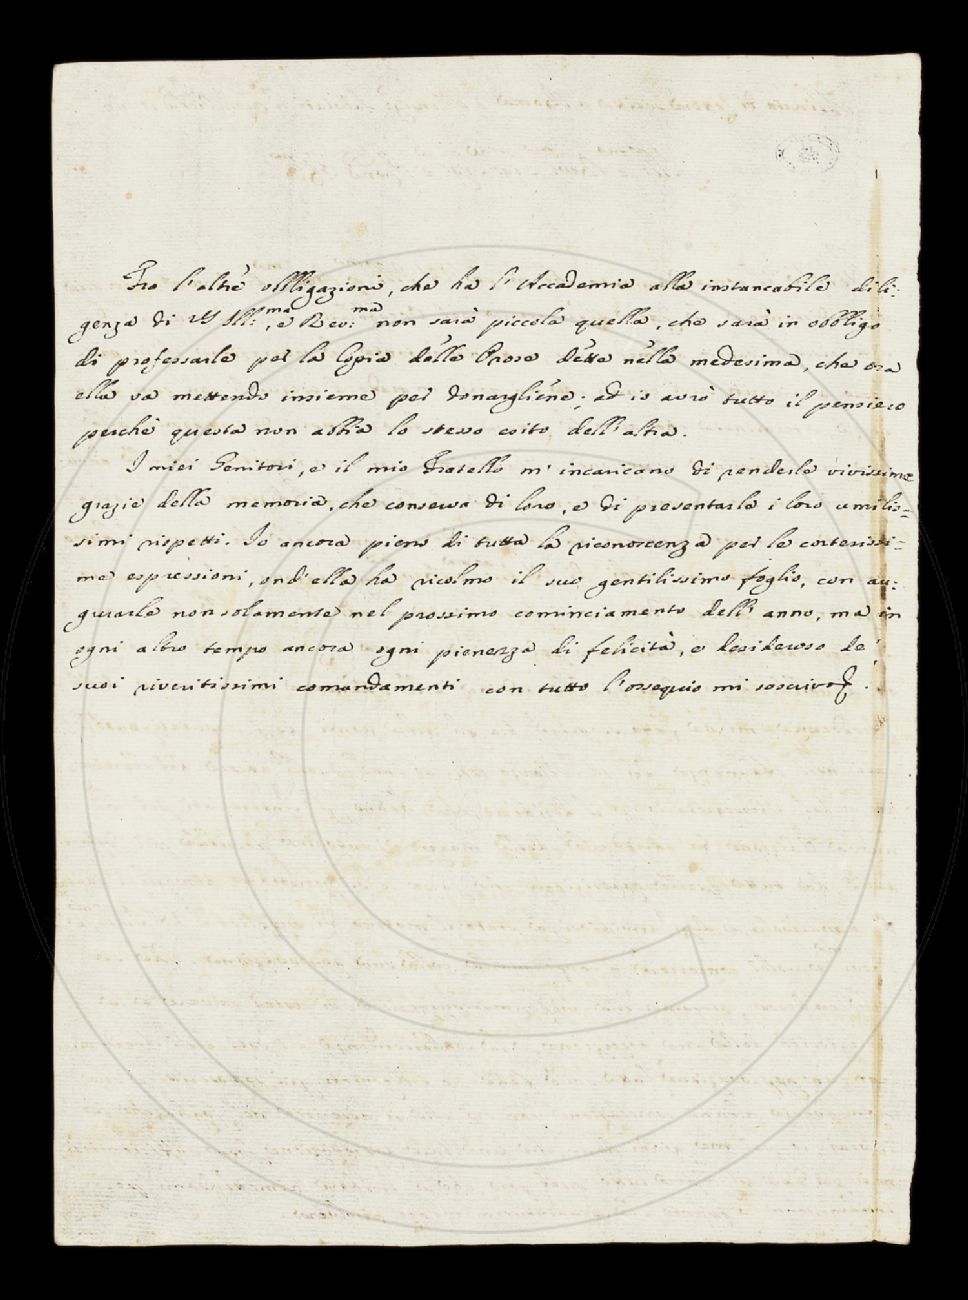 Fra l'altre obbligazioni, che ha l'Accademia alla instancabile dili-
genza di VS Ill:ma, e Rev:ma non sarà piccola quella, che sarà in obbligo
di professarle per la Copia delle Prose dette nella medesima, che ora
ella va mettendo insieme per donargliene; ed io avrò tutto il pensiero
perchè questa non abbia lo stesso esito dell'altra.
I miei Genitori, e il mio Fratello m'incaricano di renderle vivissime
grazie della memoria, che conserva di loro, e di presentarle i loro umilis-
simi rispetti. Io ancora pieno di tutta la riconoscenza per le cortesissi-
me espressioni, ond'ella ha ricolmo il suo gentilissimo foglio, con au-
gurarle non solamente nel prossimo cominciamento dell'anno, ma in
ogni altro tempo ancora ogni pienezza di felicità, e desideroso de'
suoi riveritissimi comandamenti con tutto l'ossequio mi soscrivo.